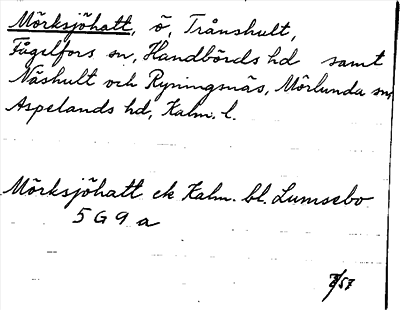 Mörksjöhatt, ö, Trånshult,
Fågelfors sn, Handbörds hd samt
Näshult och Ryningsnäs, Mörlunda sn,
Aspelands hd, Kalm. l.
Mörksjöhatt ek Kalm. bl. Lumsebo
5 G 9 a
7/57